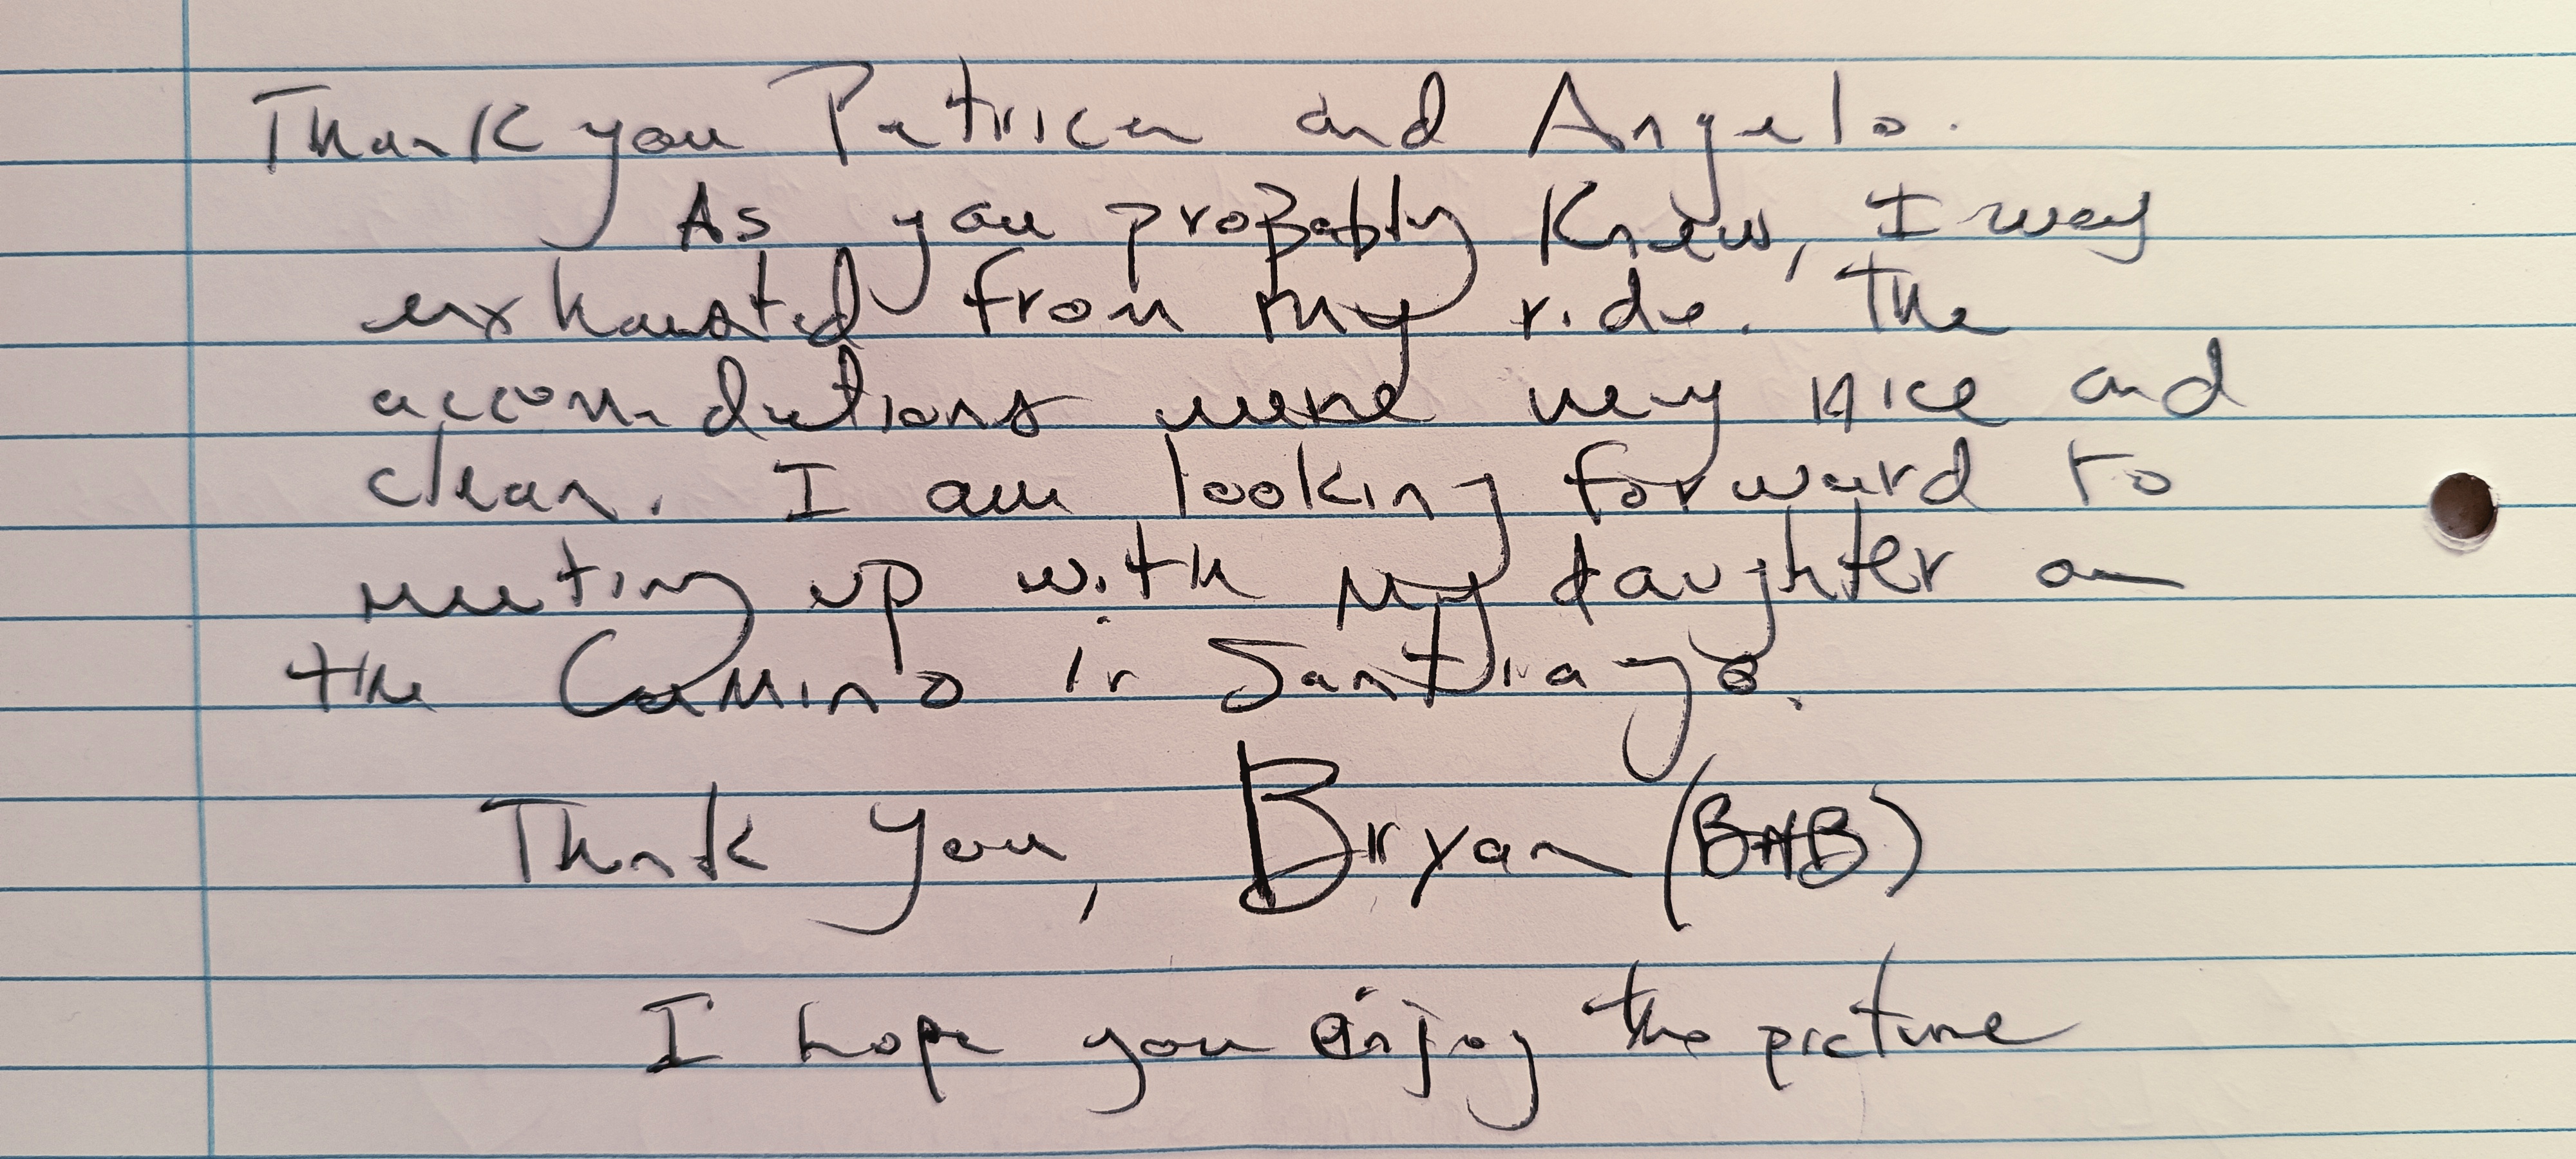 Thank you Patrica and Angelo.
As you probably knew, I was
exhausted from my ride. The
accomdations were very nice and
clean. I am looking forward to
meeting up with my daughter on
the Camino in Santiago.
Thank you, Bryan (BHB)
I hope you enjoy the picture